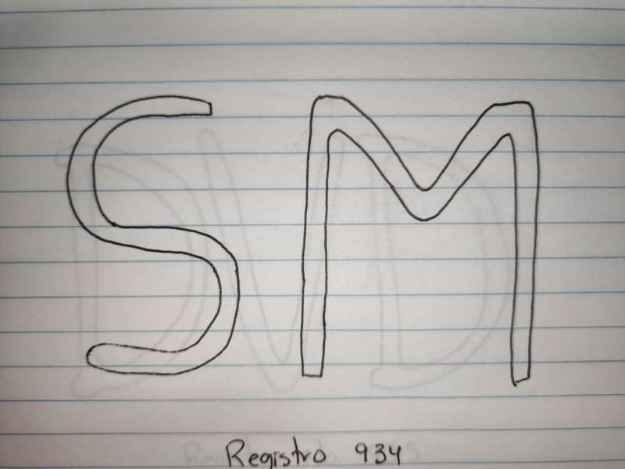 SM
Registro 934